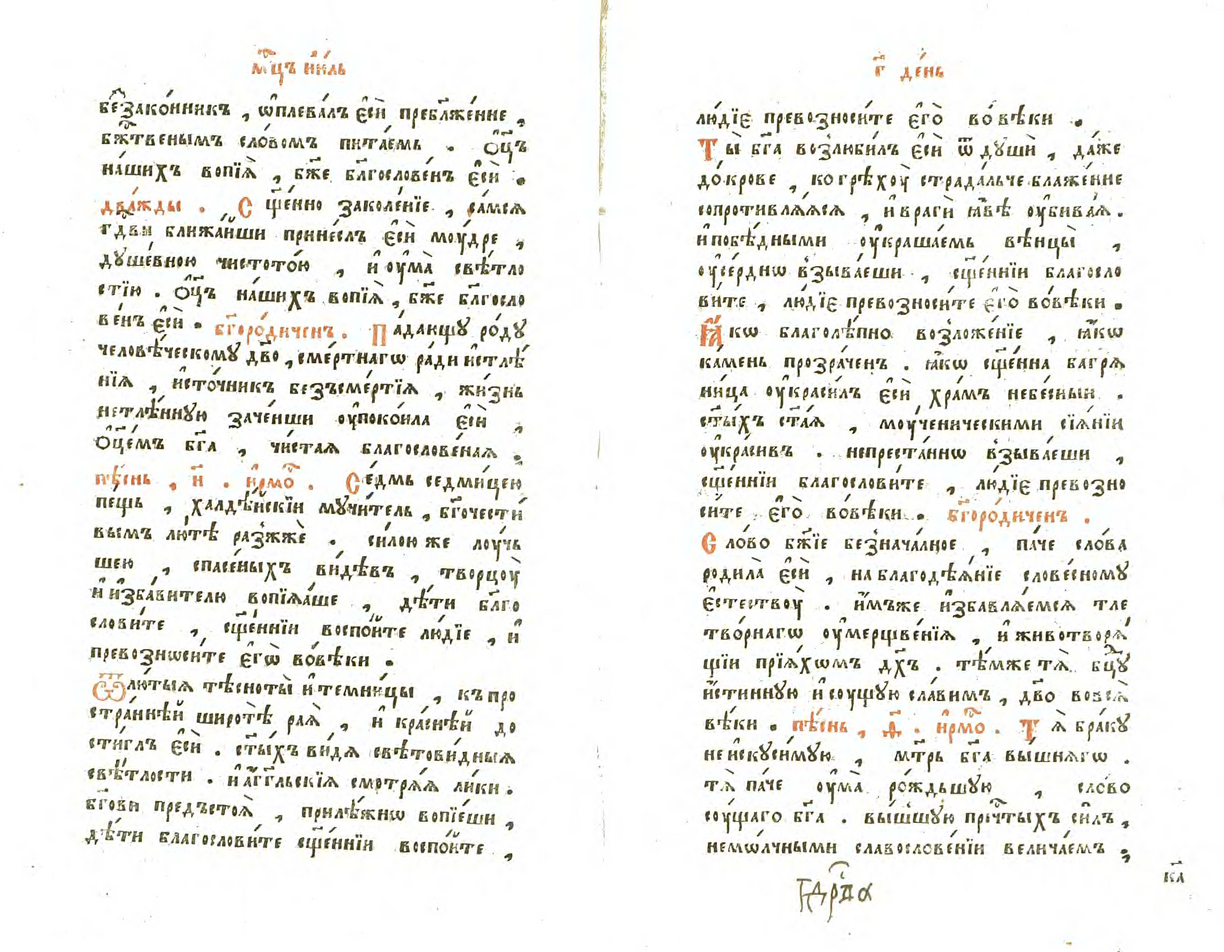 мⷭ҇цъ и҆ю́ль
беꙁако́нникъ , ѡ҆плева́лъ є҆сѝ пребл҃же́нне ,
бжⷭ҇твенымъ сло́вомъ пита́емь . Ѻ҆ц҃ъ
на́шихъ вопїѧ̀ , бж҃е бл҃гослове́нъ є҆сѝ .
два́жды . Сщ҃е́нно заколе́нїе , са́мсѧ
гдⷭ҇ви ближа́йши прине́слъ є҆сѝ моу́дре ,
дꙋше́вною чистото́ю , и҆ оу҆ма̀ свѣ́тло
стїю . Ѻ҆ц҃ъ на́шихъ вопїѧ̀ , бж҃е бл҃госло
ве́нъ є҆сѝ . бг҃оро́диченъ . Па́дшꙋ ро́дꙋ
человѣ́ческомꙋ дв҃о , сме́ртнагѡ ради и҆стлѣ́
нїѧ , и҆сто́чникъ безъсме́ртїѧ , жи́знь
нетлѣ́ннꙋю заче́нши оу҆поко́ила є҆сѝ ,
Ѻ҆ц҃е́мъ бг҃а , чи́стаѧ благослове́наѧ .
пѣ́снь , и҃ . і҆рмо́с . Се́дмь седми́цею
пе́щь , халдѣ́искїи мꙋчи́тель , бг҃очести́
вымъ лю́тѣ разжжѐ . си́лою же лоу́чь
шею , спасе́ныхъ ви́дѣвъ , творцоу̀
и҆ и҆зба́вителю вопїѧ́ше , дѣ́ти бл҃го
слови́те , сщ҃е́ннїи воспо́ите лю́дїе , и҆
превозноси́те є҆го̀ во́вѣки .
Ѿлю́тыѧ тѣсноты̀ и҆ темни́цы , къ про
стра́ннѣй широтѣ̀ раѧ̀ , и҆ кра́снѣй до
сти́глъ є҆сѝ . ст҃ы́хъ ви́дѧ свѣтови́дныѧ
свѣ́тлости . и҆ а҆́гг҃льскїѧ смотрѧ́ѧ ли́ки .
бг҃ови предъстоѧ̀ , прилѣ́жнѡ вопїе́ши ,
дѣ́ти благослови́те сщ҃е́ннїи воспо́ите ,
г҃ де́нь
лю́дїе превозноси́те є҆го̀ во́вѣки .
Ты̀ бг҃а возлюби́лъ є҆сѝ ѿ дꙋшѝ , да́же
до́крове , ко грѣхоу̀ страда́льче блаже́нне
сопротивлѧ́ѧсѧ , и҆ врагѝ ꙗ҆́вѣ оу҆бива́ѧ .
и҆ побѣ́дными оу҆краша́емь вѣнцы̀ ,
оу҆се́рднѡ взыва́еши , сщ҃е́ннїи благосло
ви́те , лю́дїе превозноси́те є҆го̀ во́вѣки .
Ꙗ҆́кѡ благолѣ́пно возложе́нїе , ꙗ҆́кѡ
ка́мень прозра́ченъ . ꙗ҆́кѡ сщ҃е́нна багрѧ
ни́ца оу҆краси́лъ є҆сѝ хра́мъ небе́сныи .
ст҃ы́хъ ст҃а́ѧ , моу́ченическими сїѧ́нїи
оу҆кра́сивъ . непреста́ннѡ взыва́еши ,
сщ҃е́ннїи благослови́те , лю́дїе превозно
си́те є҆го̀ во́вѣки . бг҃оро́диченъ .
Сло́во бж҃їе безнача́лное , па́че сло́ва
родила̀ є҆сѝ , на благодѣѧ́нїе слове́сномꙋ
є҆стествоу̀ . и҆́мъже и҆збавлѧ́емсѧ тле
тво́рнагѡ оу҆мерщве́нїѧ , и҆ животворѧ́
щїи прїѧ́хомъ дх҃ъ . тѣ́мже тѧ̀ бц҃ꙋ
и҆́стиннꙋю и҆ соу́щꙋю сла́вимъ , дв҃о во всѧ̀
вѣ́ки . пѣ́снь , ѳ҃ . і҆рмо́с . Тѧ̀ бра́кꙋ
не и҆скꙋси́мꙋю , мт҃рь бг҃а вы́шнѧгѡ .
тѧ̀ па́че оу҆ма̀ ро́ждьшꙋю , сло́во
соу́щаго бг҃а . вы́шшꙋю прчⷭ҇тыхъ си́лъ ,
немѡ́лчными славослове́нїи велича́емъ .
к҃а